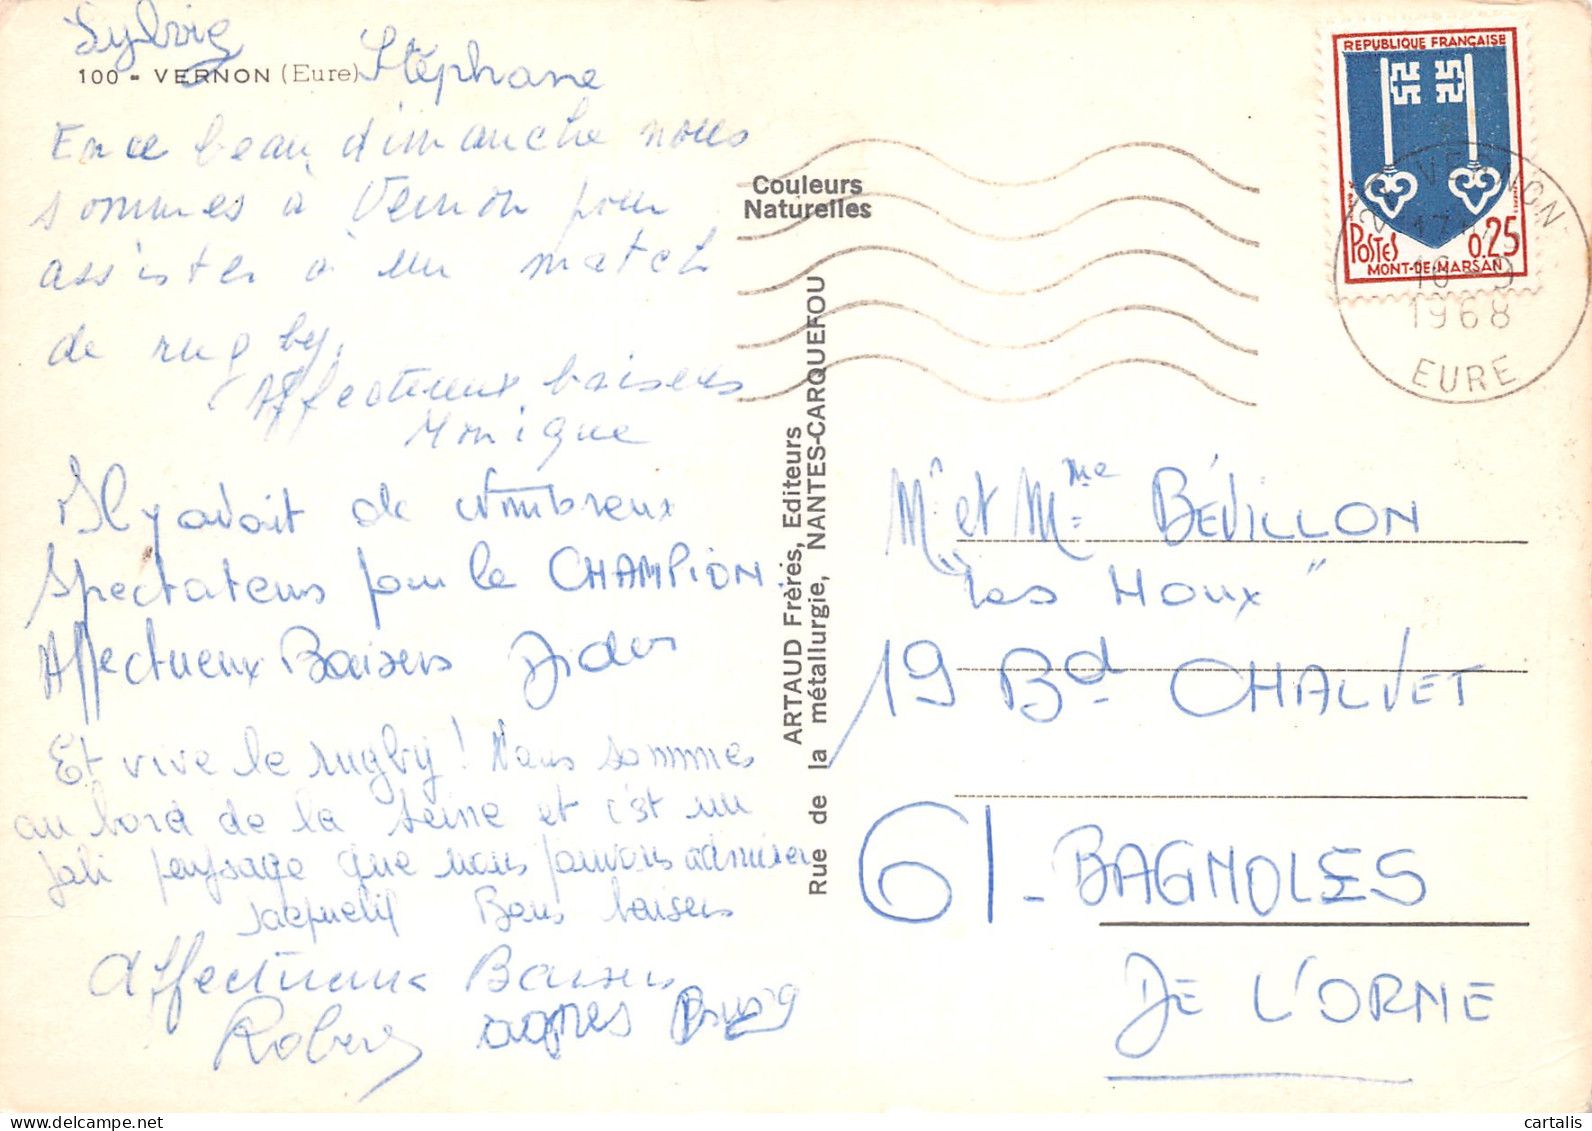 Sylvie
100 - VERNON (Eure)
Stéphane
En ce beau dimanche nous
sommes à Vernon pour
assister à un match
de rugby.
Affectueux baisers
Monique
Il y avait de nombreux
Spectateurs pour le CHAMPION.
Affectueux Baisers Didier
Et vive le rugby ! Nous sommes
au bord de la Seine et c'est un
joli paysage que nous pouvons admirer
Bons baisers
Affectueux Baisers
Robert agnes
Couleurs
Naturelles
ARTAUD Frères, Editeurs
Rue de la métallurgie, NANTES-CARQUEFOU
REPUBLIQUE FRANÇAISE
POSTES 0.25
MONT-DE-MARSAN
VERNON
1968
EURE
Mr et Mme BÉVILLON
"Les Houx"
19 Bd CHALVET
61 - BAGNOLES
DE L'ORNE
cartalis